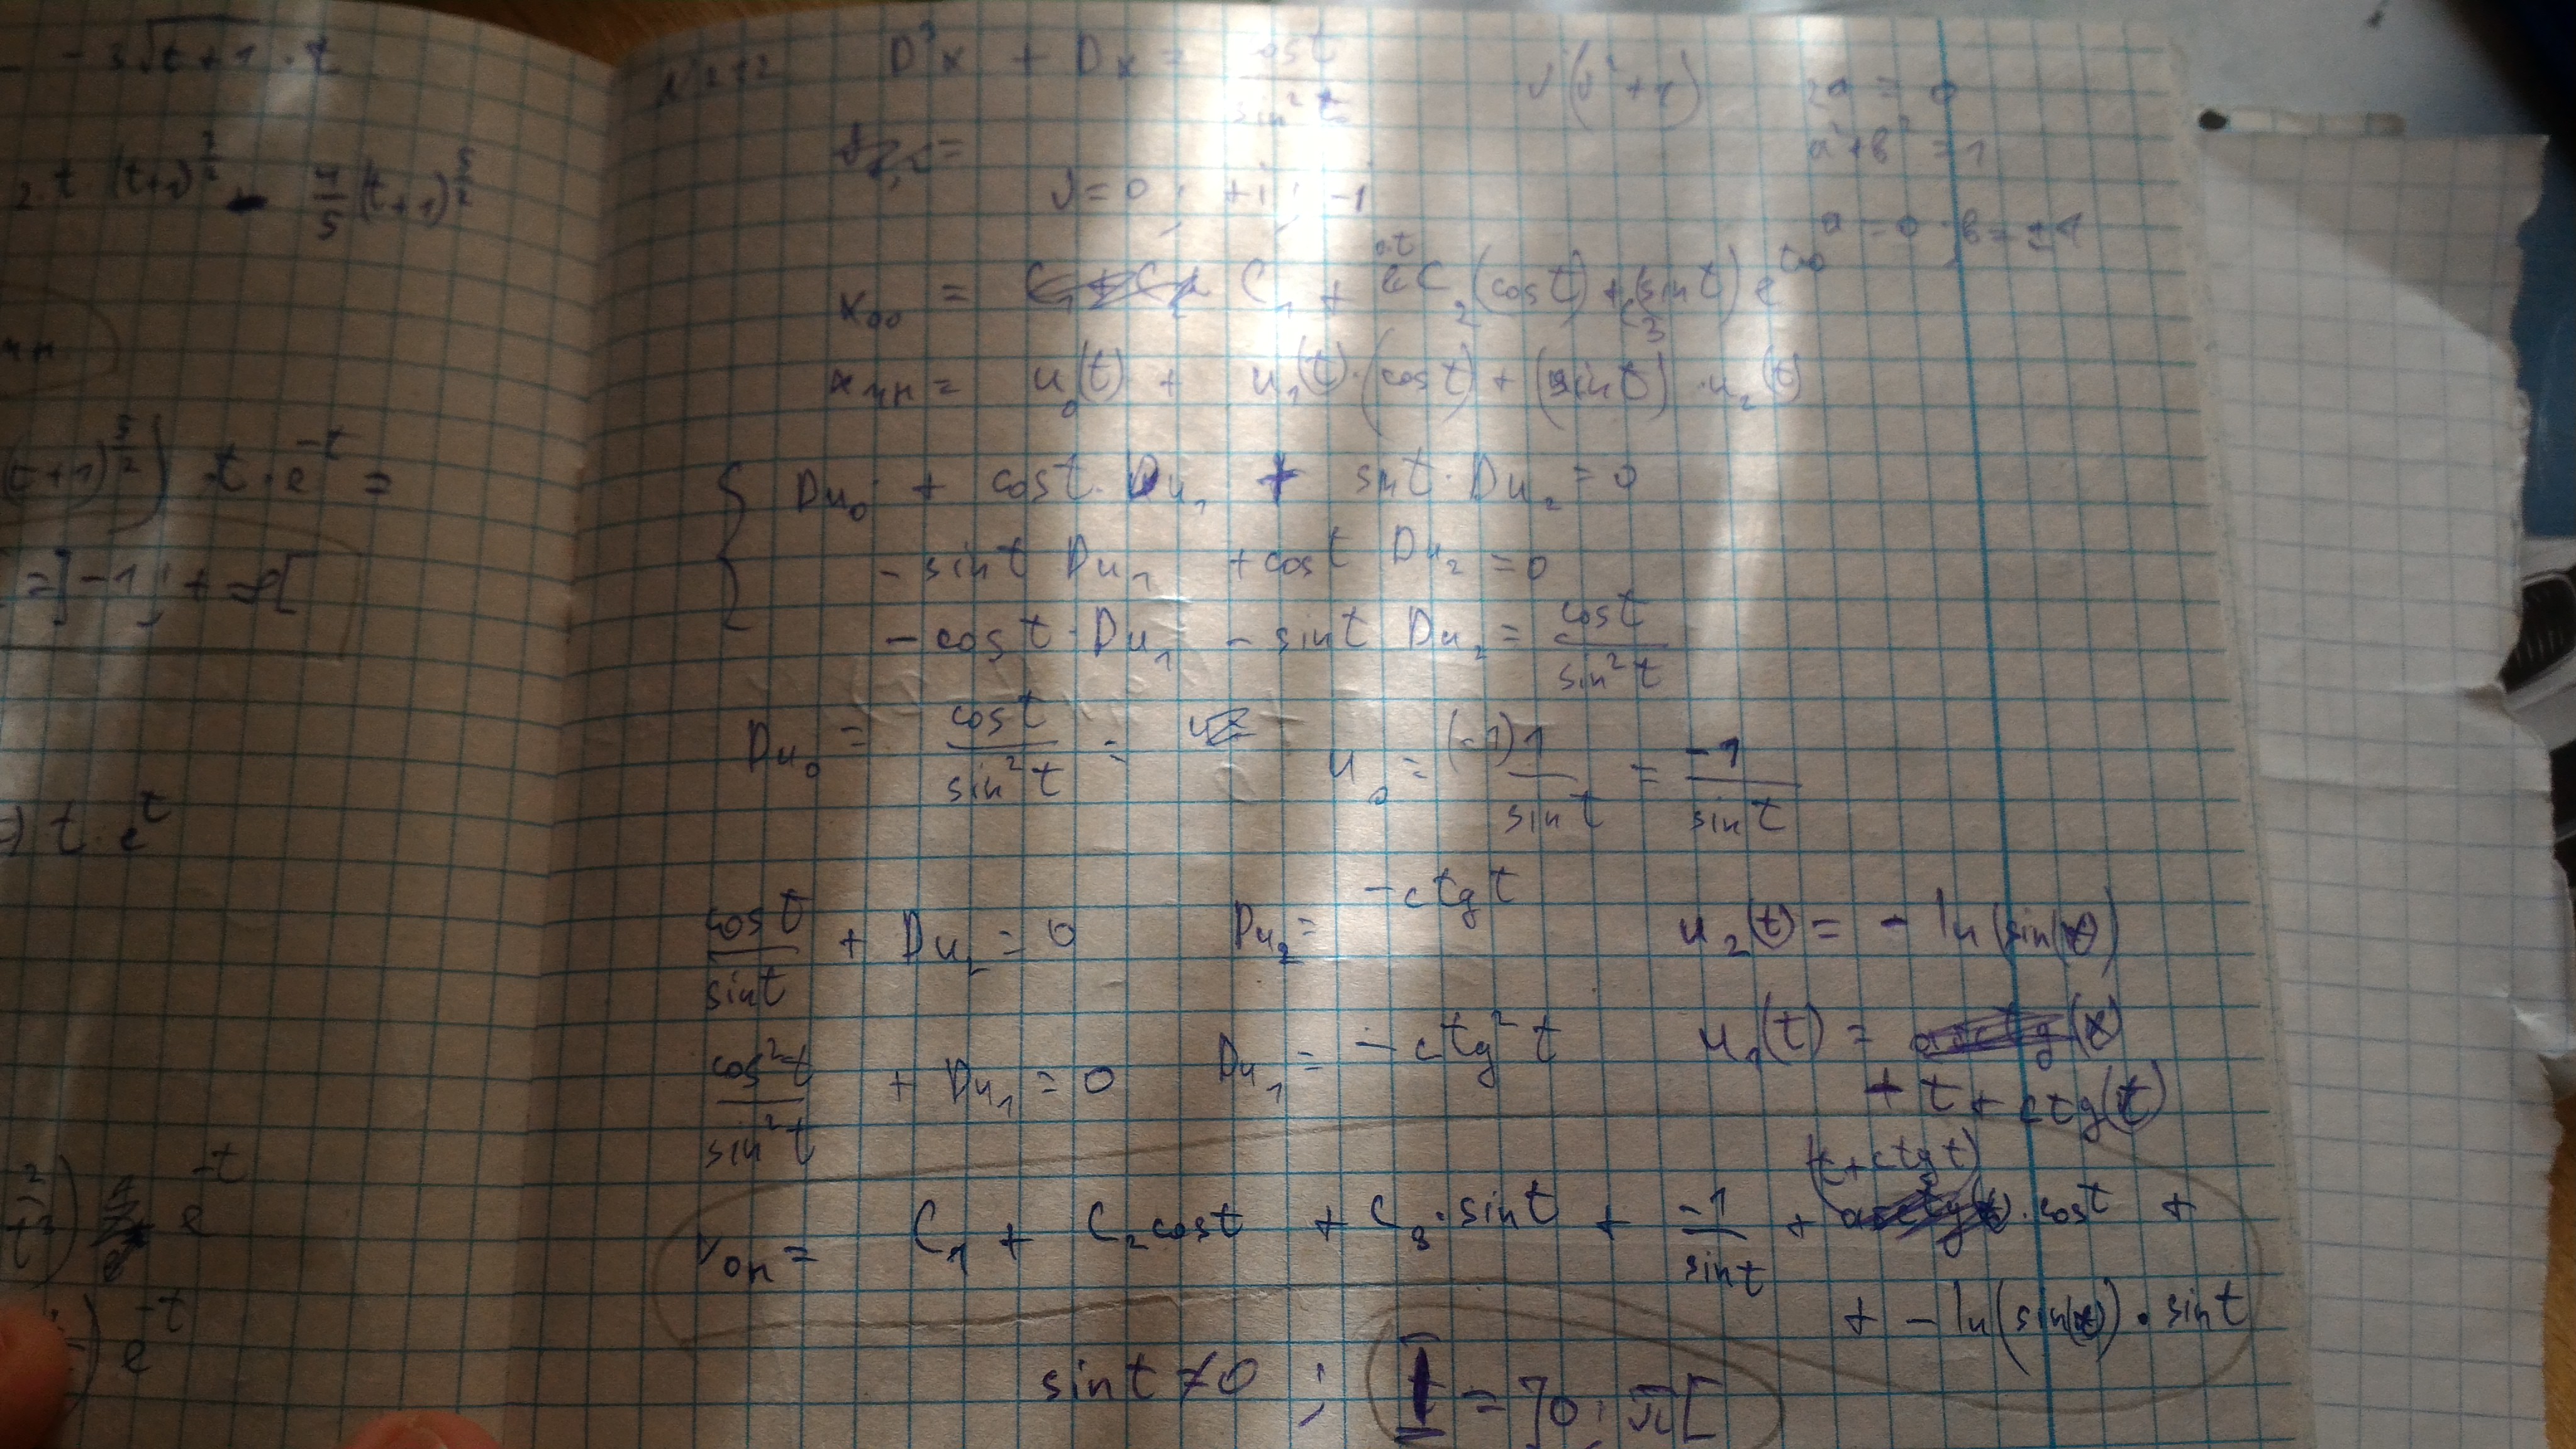 - 3√t+1 · t
2 · t · (t+1)^(3/2) - 4/5 (t+1)^(5/2)
чн
(t+1)^(5/2)) · t · e^(-t) =
= ]-1; +∞[
) t · e^t
e^(-t)
) e^(-t)
D³x + Dx = cos t / sin² t
ν(ν²+1)
2a = 0
a²+b² = 1
a = 0 b = ±1
ν = 0; +i; -i
x₀₀ = C₁ + e^(0t) C₂(cos t) + C₃(sin t) e^(t·0)
xчн = u₀(t) + u₁(t) · (cos t) + (sin t) · u₂(t)
{ Du₀ + cos t · Du₁ + sin t · Du₂ = 0
- sin t Du₁ + cos t Du₂ = 0
- cos t · Du₁ - sin t Du₂ = cos t / sin² t
Du₀ = cos t / sin² t = u₀ = (-1) 1 / sin t = -1 / sin t
cos t / sin t + Du₂ = 0 Du₂ = - ctg t u₂(t) = - ln (sin(t))
cos² t / sin² t + Du₁ = 0 Du₁ = - ctg² t u₁(t) =
+ t + ctg(t)
xон = C₁ + C₂ cos t + C₃ · sin t + -1 / sin t + (t + ctg t) · cos t +
+ - ln(sin(t)) · sin t
sin t ≠ 0 ; I = ]0; π[